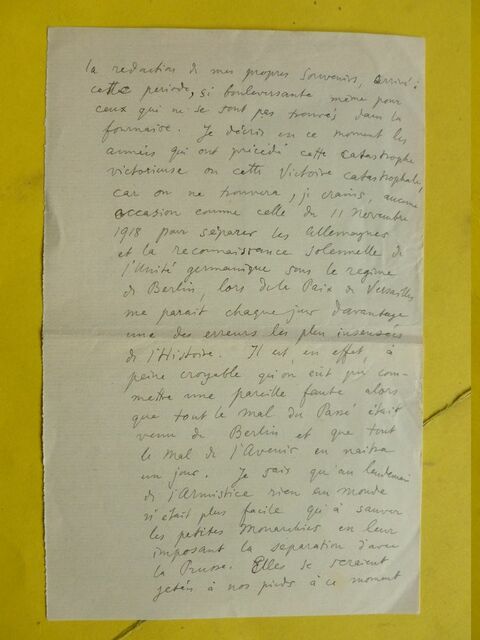 la rédaction de mes propres souvenirs, arrivé à
cette période, si bouleversante même pour
ceux qui ne se sont pas trouvés dans la
fournaise. Je décris en ce moment les
années qui ont précédé cette catastrophe
victorieuse ou cette Victoire catastrophale,
car on ne trouvera, je crains, aucune
occasion comme celle du 11 Novembre
1918 pour séparer les Allemagnes
et la reconnaissance solennelle de
l'Unité germanique sous le régime
de Berlin, lors de la Paix de Versailles
me parait chaque jour davantage
une des erreurs les plus insensées
de l'Histoire. Il est en effet, à
peine croyable qu'on eût pu com-
mettre une pareille faute alors
que tout le mal du Passé était
venu de Berlin et que tout
le mal de l'Avenir en naitra
un jour. Je sais qu'au lendemain
de l'Armistice rien au monde
n'était plus facile qu'à sauver
les petites Monarchies en leur
imposant la séparation d'avec
la Prusse. Elles se seraient
jetées à nos pieds à ce moment